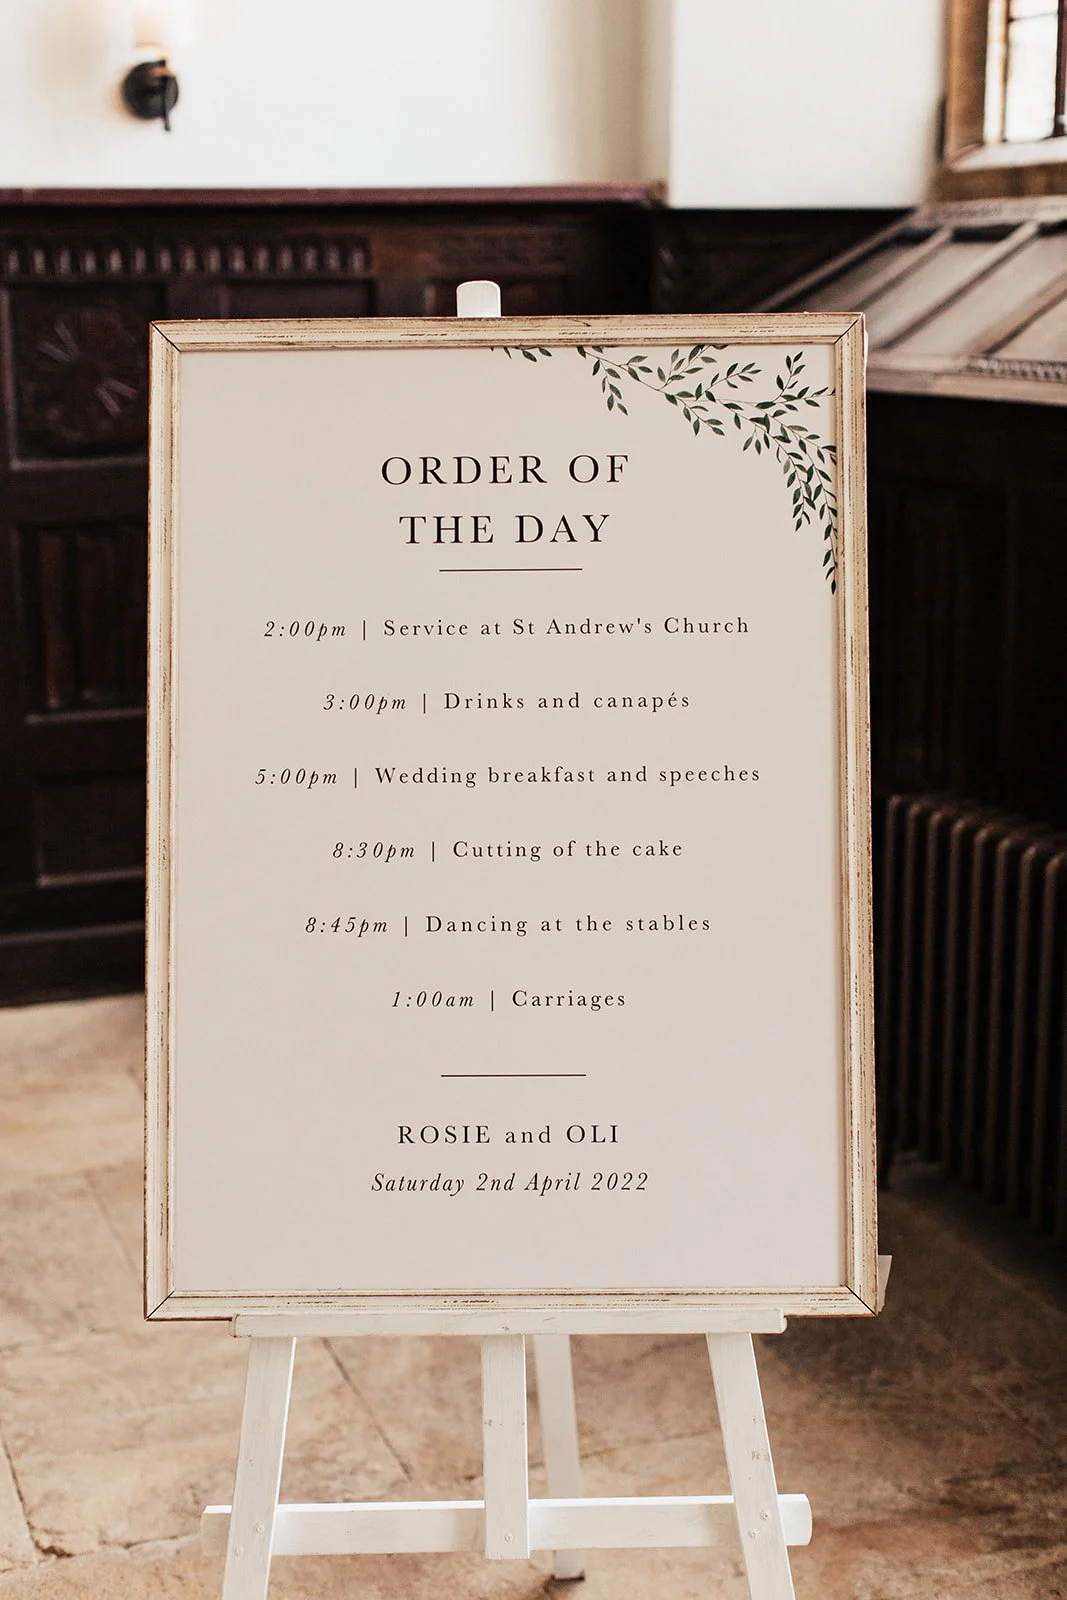 ORDER OF
THE DAY
2:00pm | Service at St Andrew's Church
3:00pm | Drinks and canapés
5:00pm | Wedding breakfast and speeches
8:30pm | Cutting of the cake
8:45pm | Dancing at the stables
1:00am | Carriages
ROSIE and OLI
Saturday 2nd April 2022